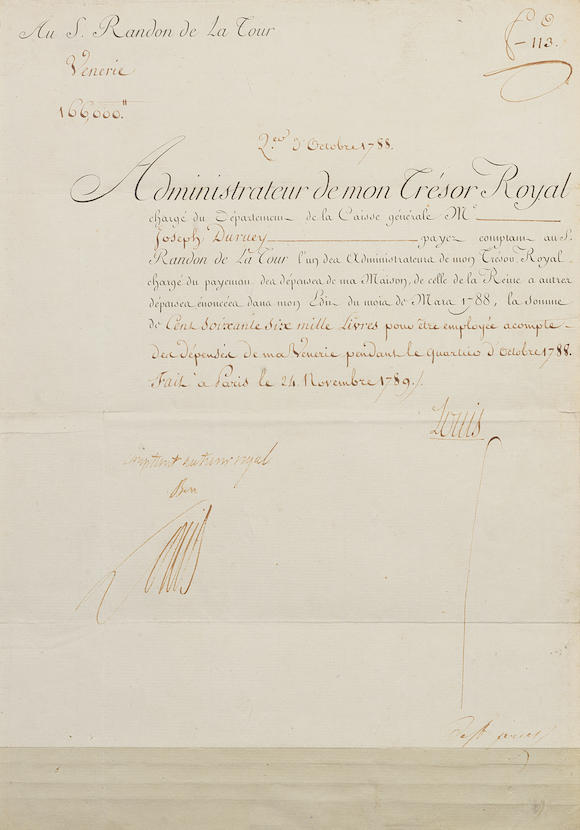 Au S. Randon de La Tour
113.
Venerie
166,000.
2.eo d'Octobre 1788.
Administrateur de mon Trésor Royal
chargé du Département de la Caisse générale M.
Joseph Duruey, payez comptant au S.
Randon de La Tour l'un des Administrateurs de mon Trésor Royal
chargé du payement des dépenses de ma Maison, de celle de la Reine & autres
dépenses énoncées dans mon Edit du mois de Mars 1788, la somme
de Cent Soixante Six mille Livres pour être employée acompte
des dépenses de ma Venerie pendant le quartier d'Octobre 1788.
Fait à Paris le 24 Novembre 1789./.
Louis
comptant au tresor royal
Bon
Louis